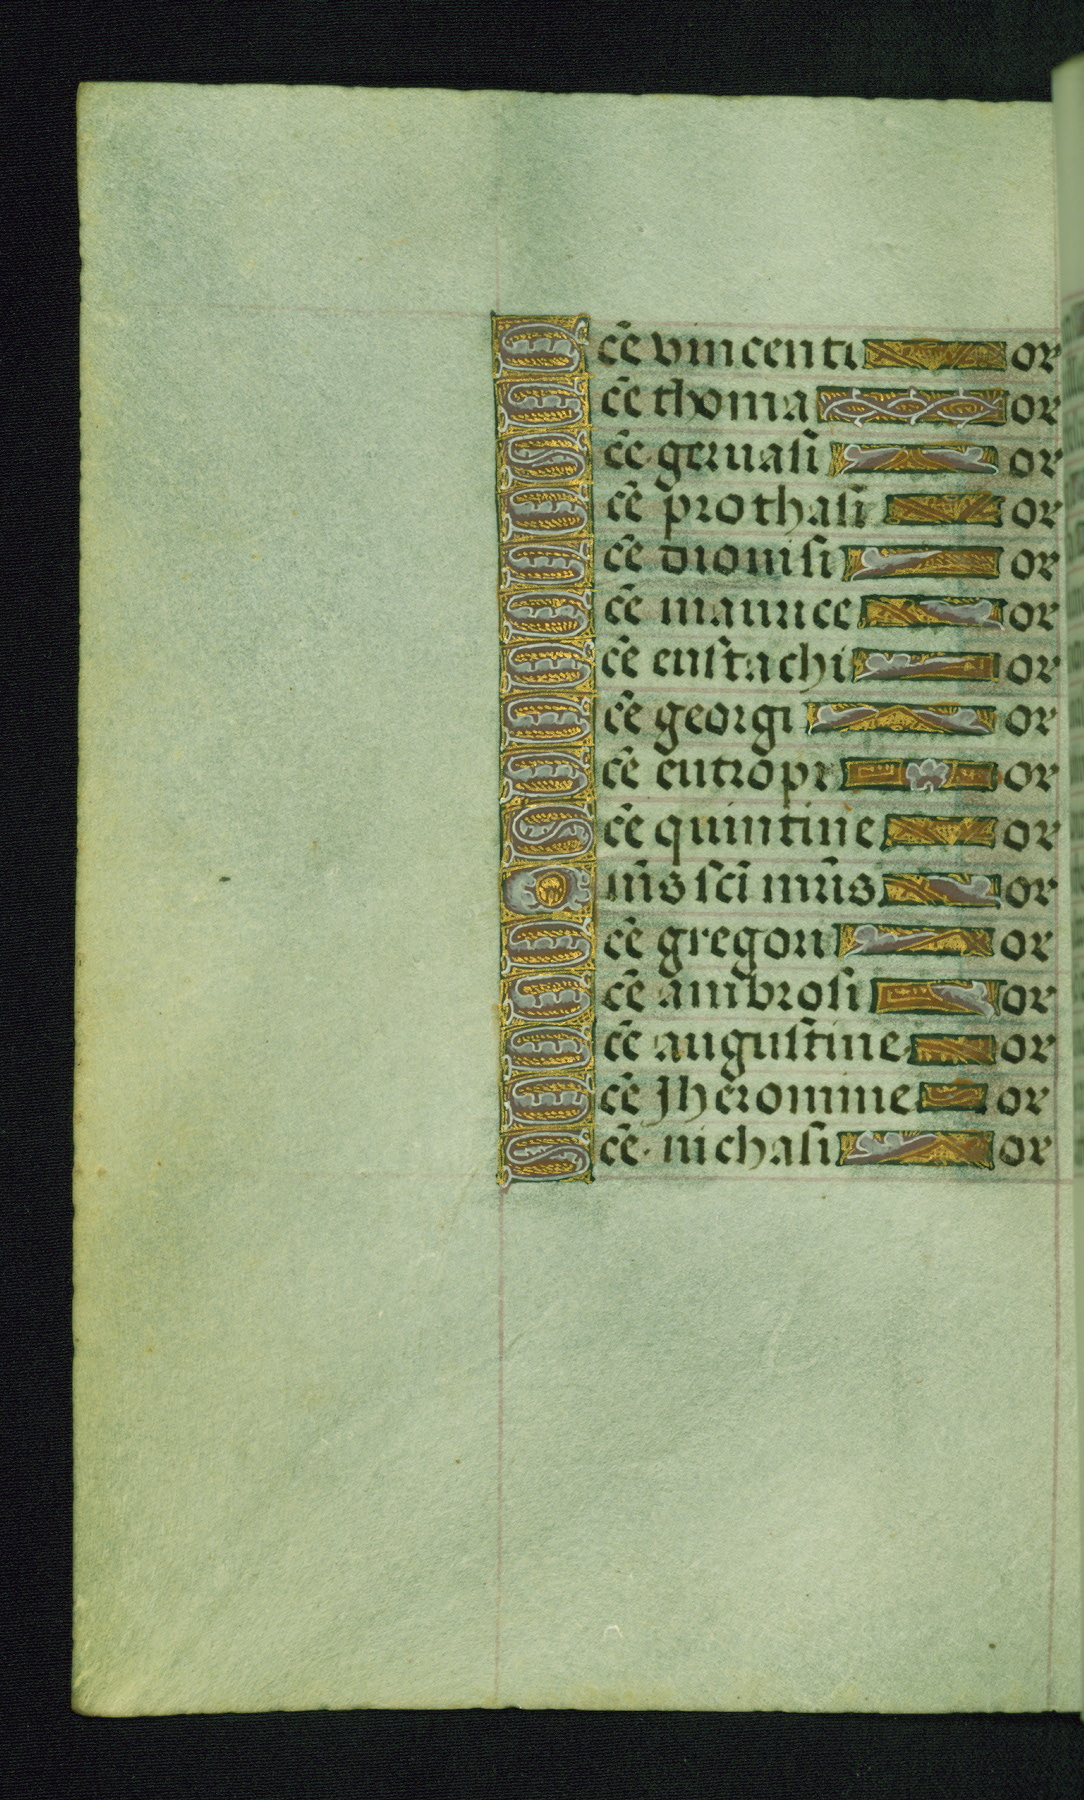 Scē vincenti or
Scē thoma or
Scē geruasi or
Scē prothasi or
Scē dionisi or
Scē maurice or
Scē eustachi or
Scē georgi or
Scē eutropi or
Scē quintine or
Om̄s sc̄i mr̄is or
Scē gregori or
Scē ambrosi or
Scē augustine or
Scē Jheronime or
Scē nichasi or